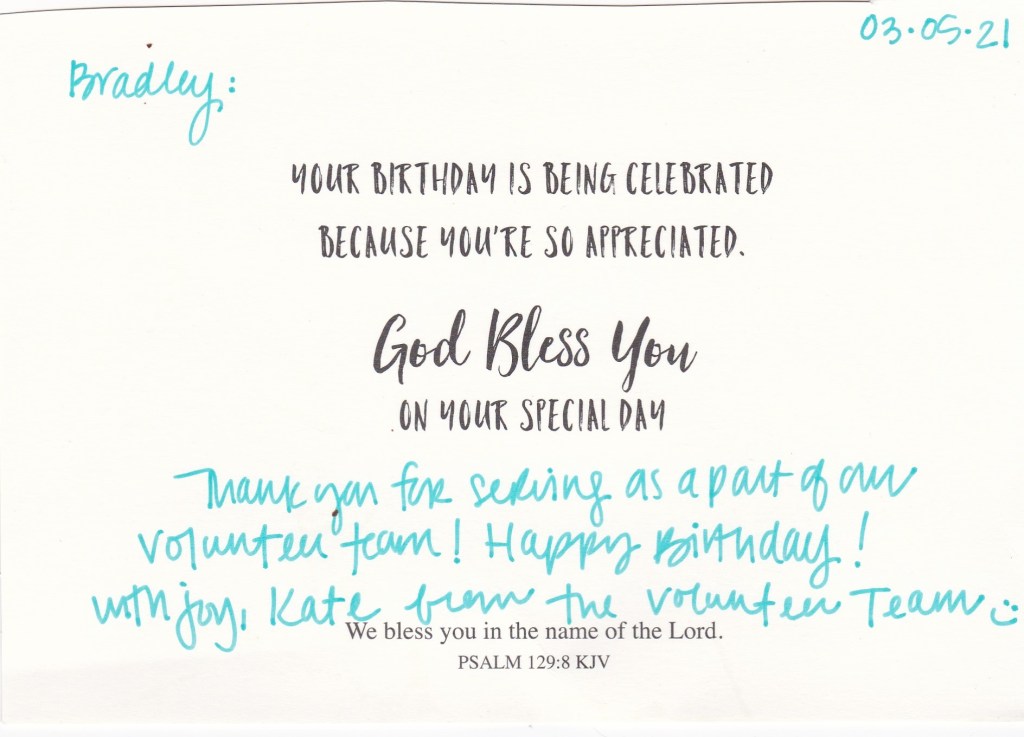 03.05.21
Bradley:
YOUR BIRTHDAY IS BEING CELEBRATED
BECAUSE YOU'RE SO APPRECIATED.
God Bless You
ON YOUR SPECIAL DAY
Thank you for serving as a part of our
volunteer team! Happy Birthday!
with joy, Kate from the Volunteer Team :)
We bless you in the name of the Lord.
PSALM 129:8 KJV